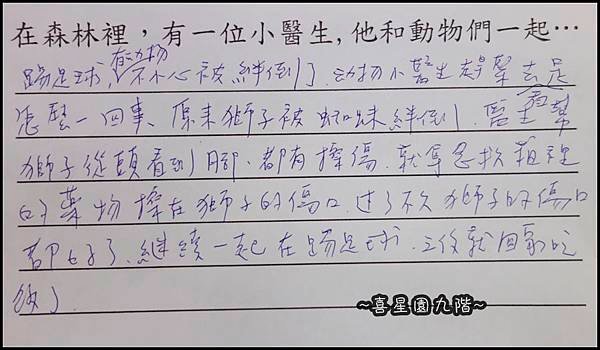 在森林裡，有一位小醫生，他和動物們一起…
踢足球，有動物不小心被絆倒了．動物小醫生趕緊去看是
怎麼一回事、原來獅子被蜘蛛絆倒．醫生幫
獅子從頭看到腳．都有擦傷．就拿急救箱裡
的藥物擦在獅子的傷口．过了不久獅子的傷口
都好了．繼續一起在踢足球．之後就回家吃
飯了
~喜星園九階~